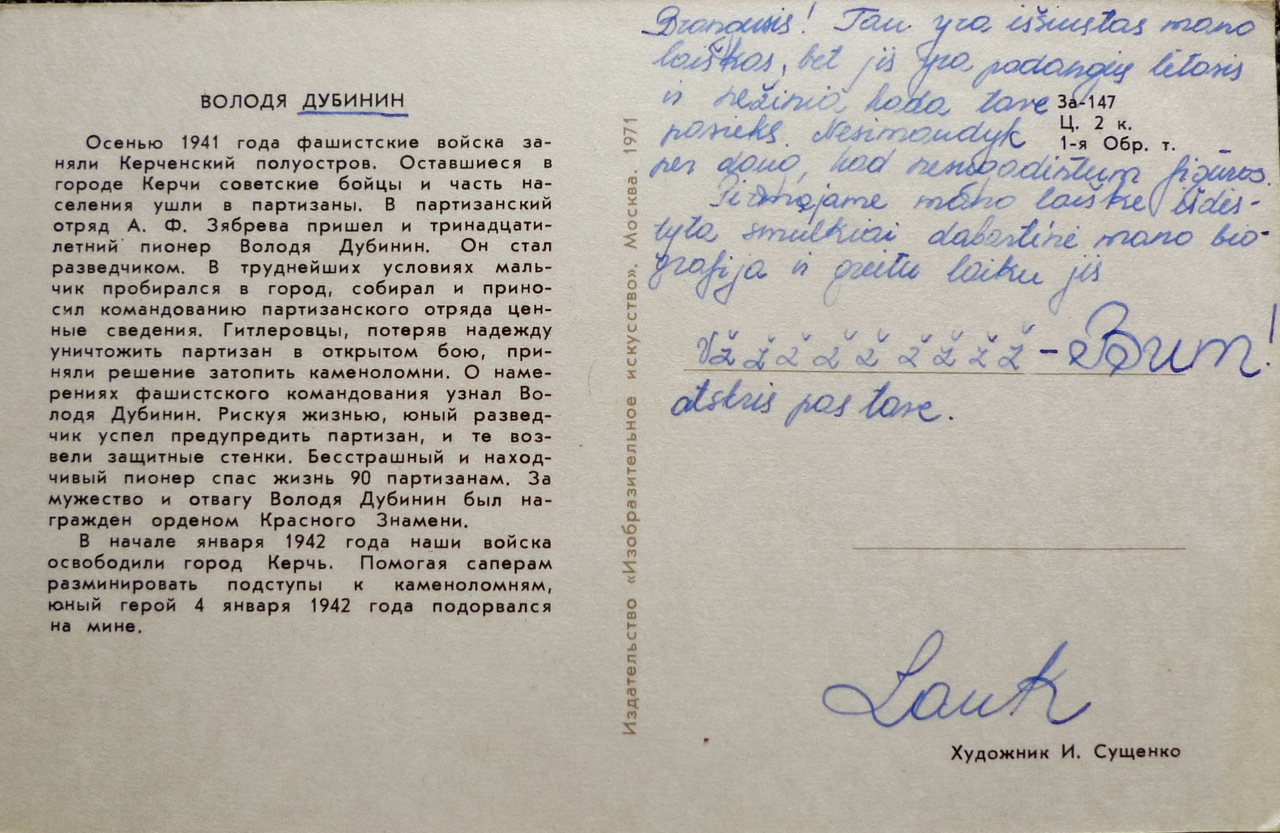 ВОЛОДЯ ДУБИНИН
Осенью 1941 года фашистские войска за-
няли Керченский полуостров. Оставшиеся в
городе Керчи советские бойцы и часть на-
селения ушли в партизаны. В партизанский
отряд А. Ф. Зябрева пришел и тринадцати-
летний пионер Володя Дубинин. Он стал
разведчиком. В труднейших условиях маль-
чик пробирался в город, собирал и прино-
сил командованию партизанского отряда цен-
ные сведения. Гитлеровцы, потеряв надежду
уничтожить партизан в открытом бою, при-
няли решение затопить каменоломни. О наме-
рениях фашистского командования узнал Во-
лодя Дубинин. Рискуя жизнью, юный развед-
чик успел предупредить партизан, и те воз-
вели защитные стенки. Бесстрашный и наход-
чивый пионер спас жизнь 90 партизанам. За
мужество и отвагу Володя Дубинин был на-
гражден орденом Красного Знамени.
В начале января 1942 года наши войска
освободили город Керчь. Помогая саперам
разминировать подступы к каменоломням,
юный герой 4 января 1942 года подорвался
на мине.
Издательство «Изобразительное искусство». Москва. 1971
Brangusis! Tau yra išsiustas mano
laiškas, bet jis yra padangių lėtasis
ir nežinia kada tave
pasieks. Nesimaudyk
per daug, kad nenugadintum figūros.
Pirmajame mano laiške išdės-
tyta smulkiai dabartinė mano bio-
grafija ir greitu laiku jis
Vžžžžžžžžž - Bum!
atskris pas tave.
За-147
Ц. 2 к.
1-я Обр. т.
Lauk
Художник И. Сущенко